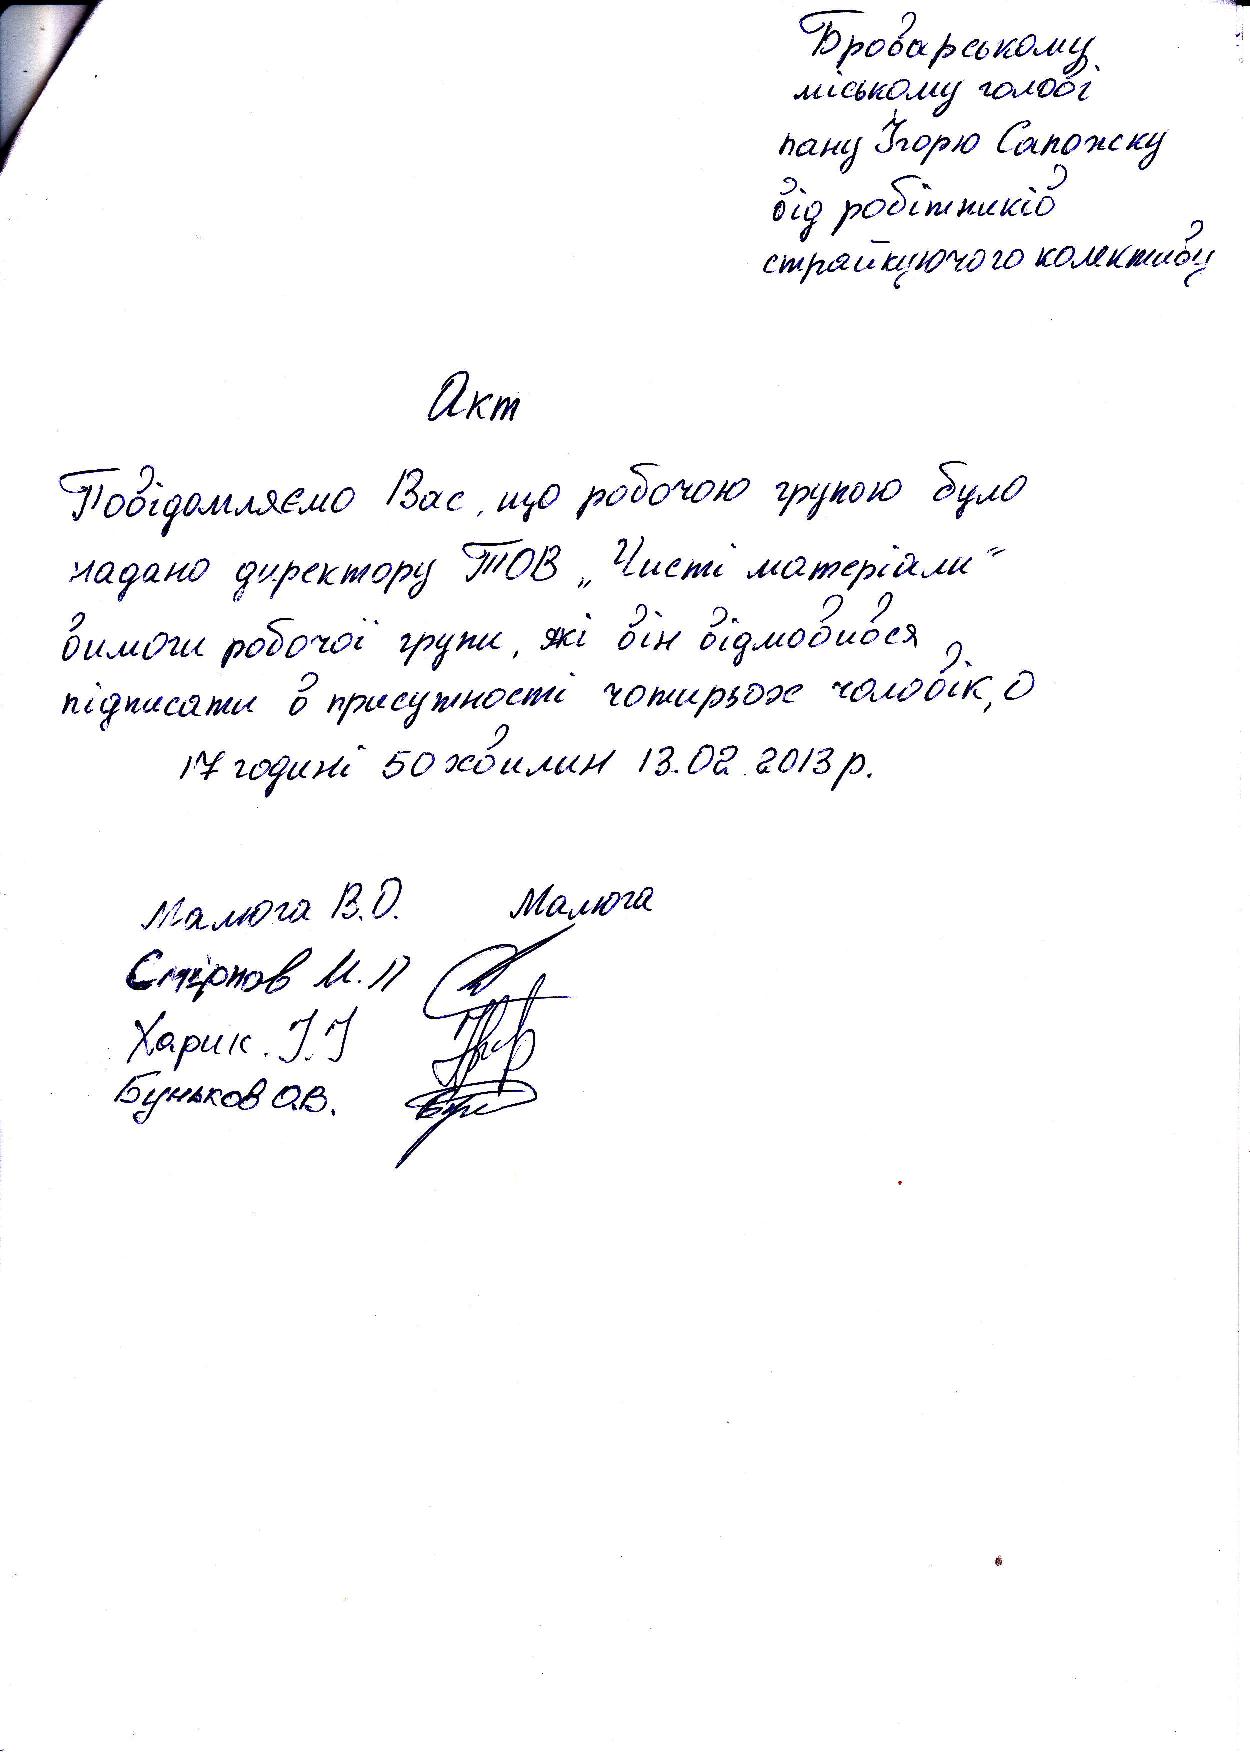 Броварському
міському голові
пану Ігорю Сапожку
від робітників
страйкуючого колективу
Акт
Повідомляємо Вас, що робочою групою було
надано директору ТОВ „Чисті матеріали"
вимоги робочої групи, які він відмовився
підписати в присутності чотирьох чоловік, о
17 годині 50 хвилин 13.02.2013 р.
Малюга В.О. Малюга
Смірнов М.П
Харик. І.І
Буньков О.В.